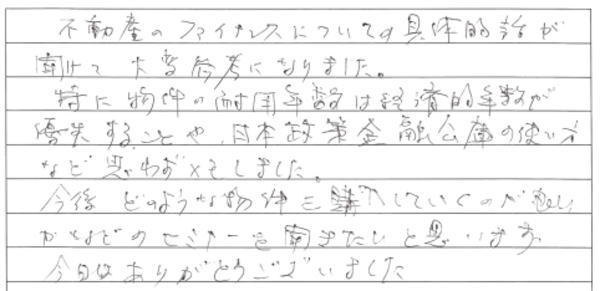 不動産のファイナンスについての具体的話が
聞けて大変参考になりました。
特に物件の耐用年数は経済的年数が
優先することや、日本政策金融公庫の使い方
など思わずメモしました。
今後どのような物件を購入していくのが
などのセミナーを聞きたいと思います
今日はありがとうございました